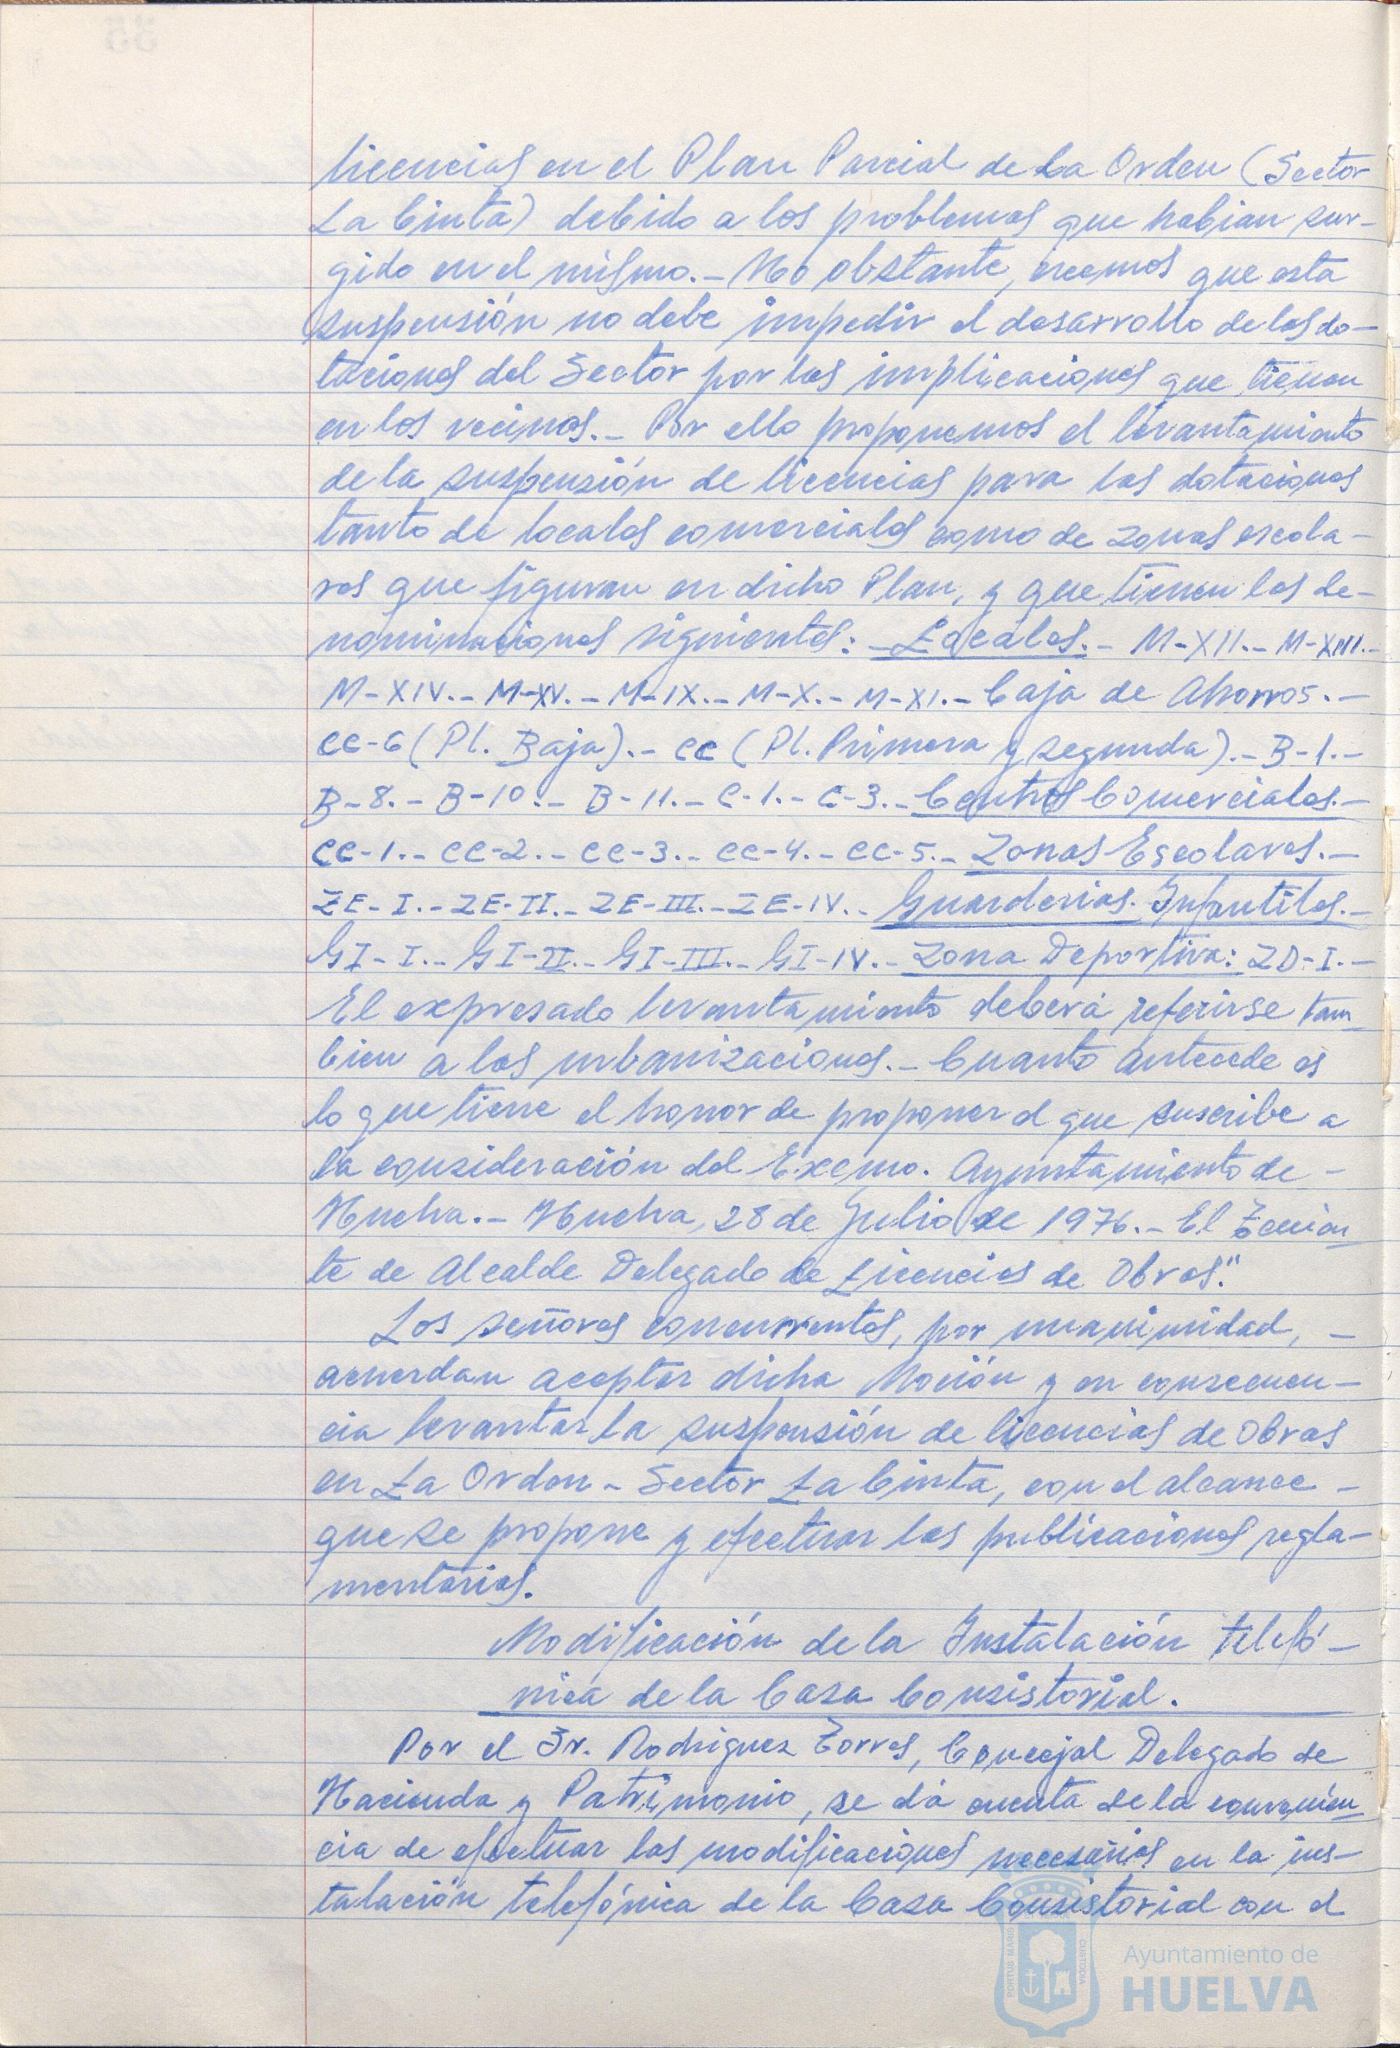 licencias en el Plan Parcial de La Orden (Sector
La Cinta) debido a los problemas que habian sur-
gido en el mismo.- No obstante, creemos que esta
suspensión no debe impedir el desarrollo de las do-
taciones del Sector por las implicaciones que tienen
en los vecinos.- Por ello proponemos el levantamiento
de la suspensión de licencias para las dotaciones
tanto de locales comerciales como de zonas escola-
res que figuran en dicho Plan, y que tienen las de-
nominaciones siguientes:- Locales.- M-XII.- M-XIII.-
M-XIV.- M-XV.- M-IX.- M-X.- M-XI.- Caja de Ahorros.-
CC-6 (Pl. Baja).- CC (Pl. Primera y segunda).- B-1.-
B-8.- B-10.- B-11.- C-1.- C-3.- Centros Comerciales.-
CC-1.- CC-2.- CC-3.- CC-4.- CC-5.- Zonas Escolares.-
ZE-I.- ZE-II.- ZE-III.- ZE-IV.- Guarderias Infantiles.-
GI-I.- GI-II.- GI-III.- GI-IV.- Zona Deportiva: ZD-I.-
El expresado levantamiento deberá referirse tam-
bien a las urbanizaciones.- Cuanto antecede es
lo que tiene el honor de proponer el que suscribe a
la consideración del Excmo. Ayuntamiento de -
Huelva.- Huelva, 28 de Julio de 1976.- El Tenien-
te de Alcalde Delegado de Licencias de Obras."
Los señores concurrentes, por unanimidad, -
acuerdan aceptar dicha Moción y en consecuen-
cia levantar la suspensión de licencias de Obras
en La Orden - Sector La Cinta, con el alcance -
que se propone y efectuar las publicaciones regla-
mentarias.
Modificación de la Instalación telefó-
nica de la Casa Consistorial.
Por el Sr. Rodriguez Torres, Concejal Delegado de
Hacienda y Patrimonio, se dá cuenta de la convenien-
cia de efectuar las modificaciones necesarias en la ins-
talación telefónica de la Casa Consistorial con el
Ayuntamiento de
HUELVA